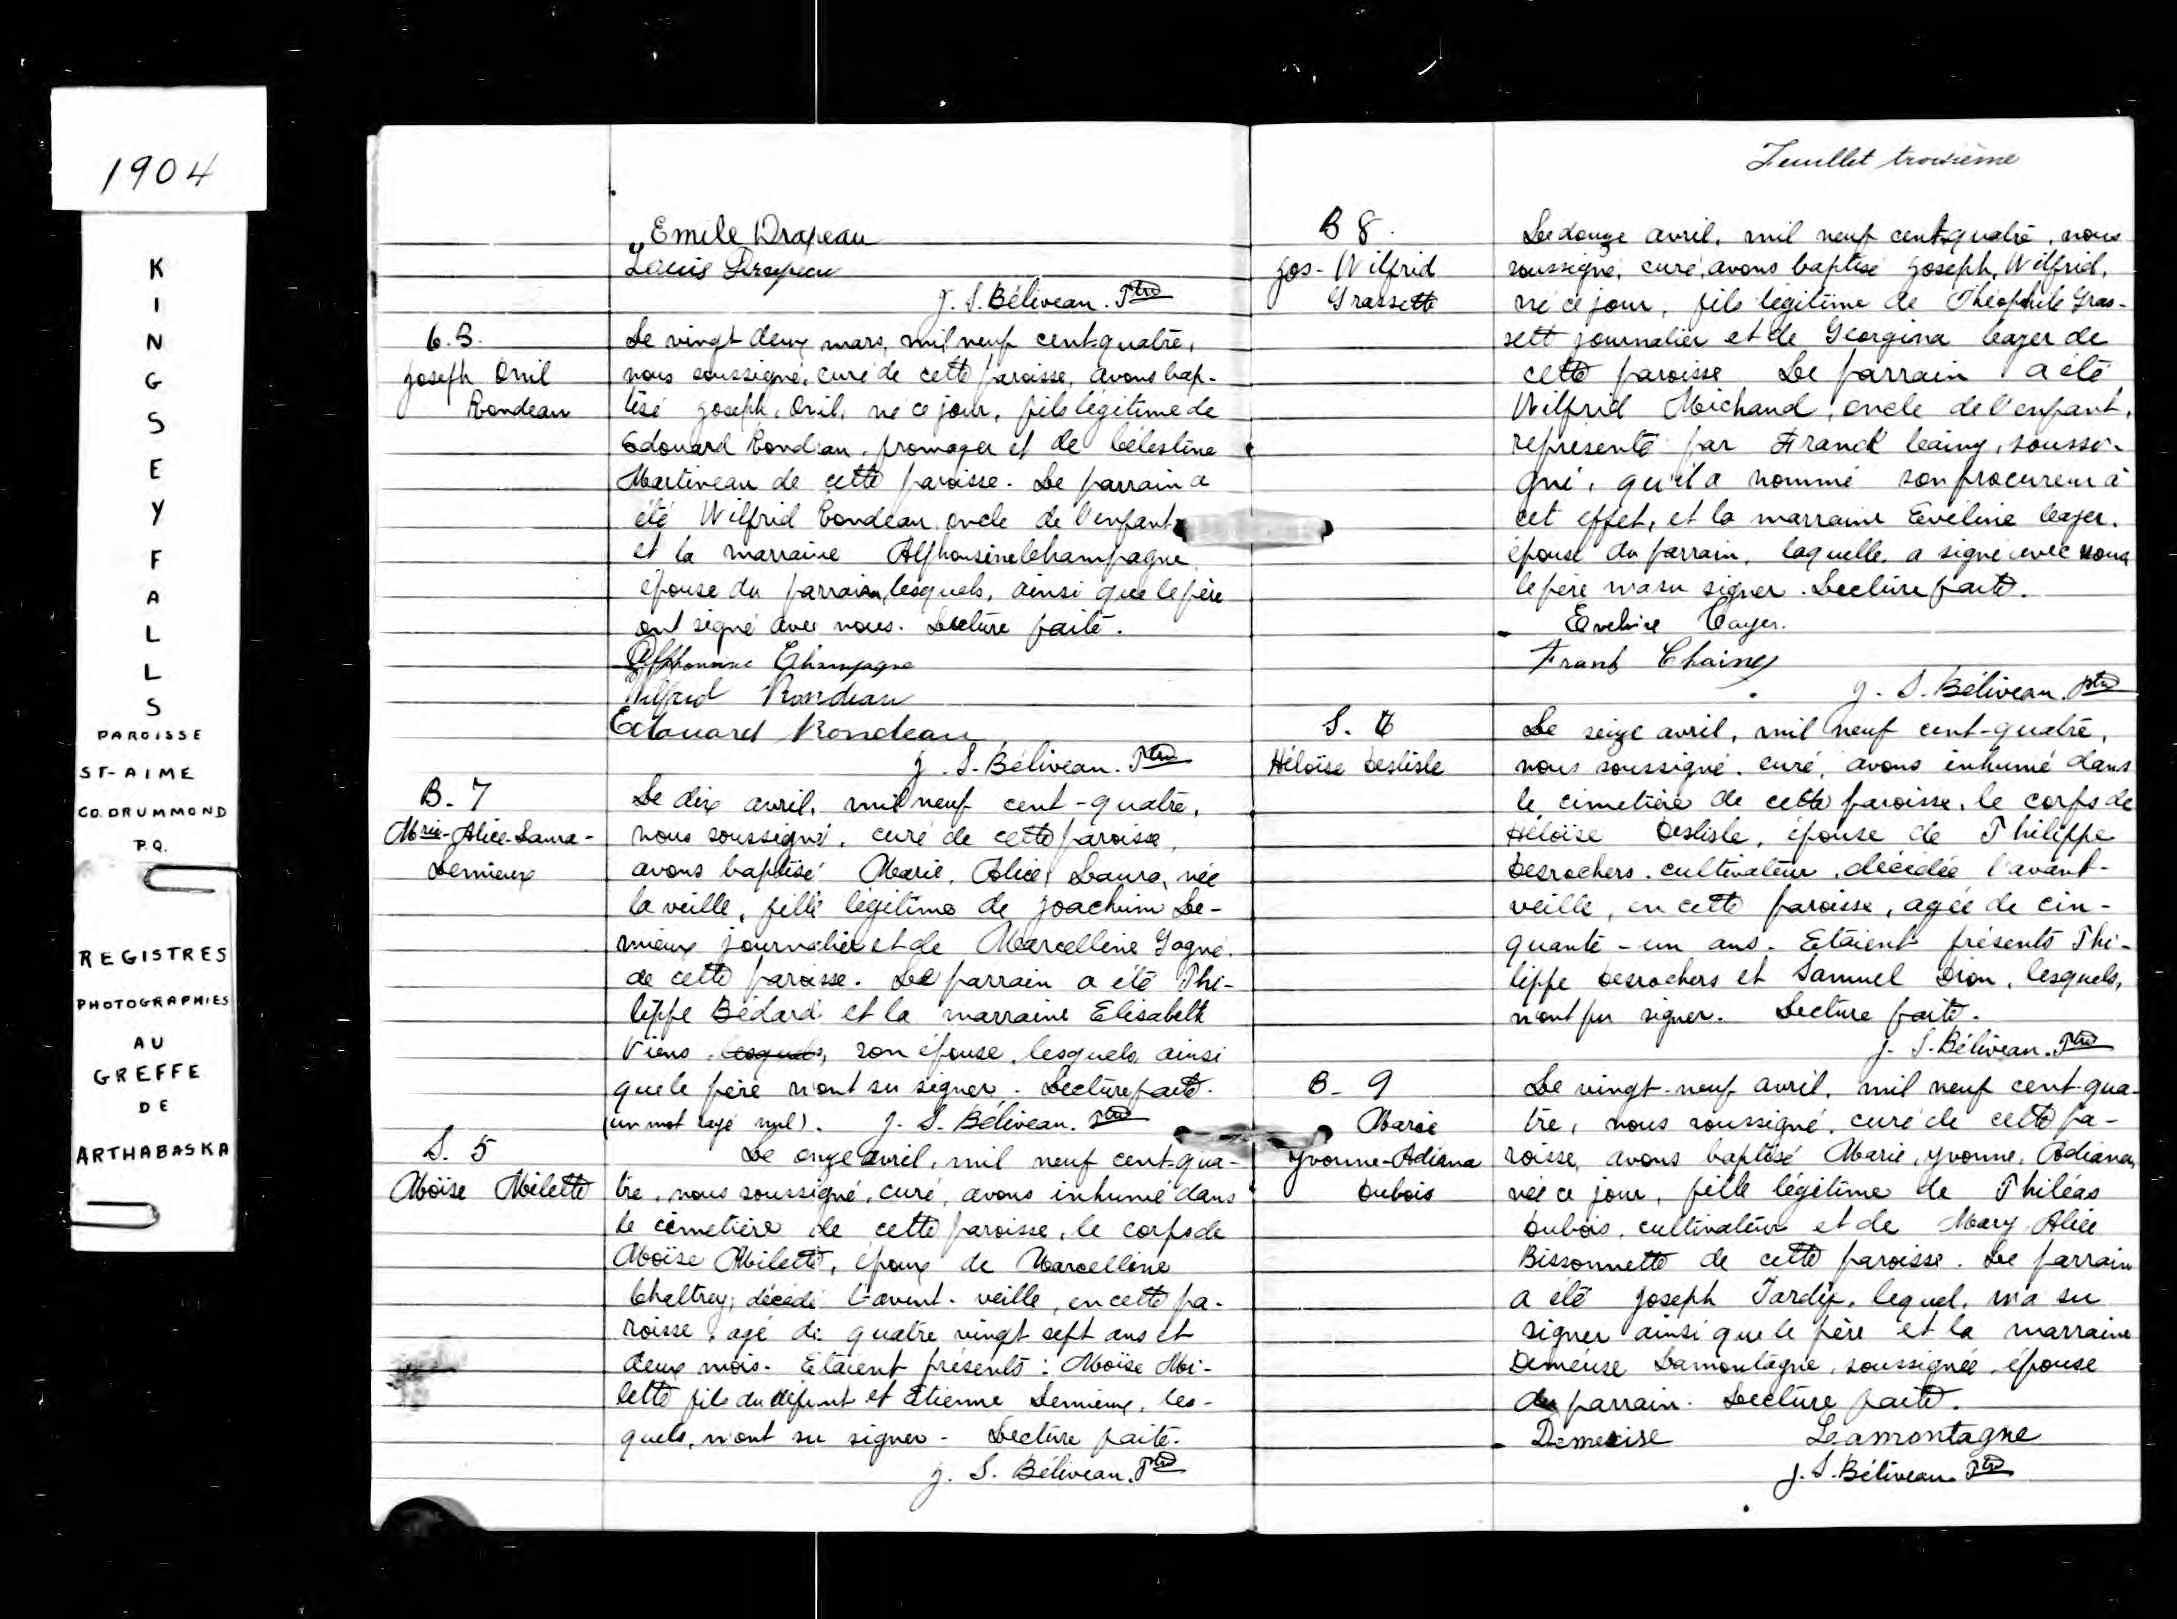 1904
KINGSEY FALLS
PAROISSE
ST-AIME
CO. DRUMMOND
P.Q.
REGISTRES
PHOTOGRAPHIES
AU
GREFFE
DE
ARTHABASKA
Emile Drapeau
Louis Drapeau
J. S. Béliveau. Ptre
6.B.
Joseph Onil
Rondeau
Le vingt deux mars, mil neuf cent-quatre,
nous soussigné, curé de cette paroisse, avons bap-
tisé Joseph, Onil, né ce jour, fils légitime de
Edouard Rondeau, fromager et de Célestine
Martineau de cette paroisse. Le parrain a
été Wilfrid Rondeau, oncle de l'enfant
et la marraine Alphonsine Champagne
épouse du parrain, lesquels, ainsi que le père
ont signé avec nous. Lecture faite.
Alphonsine Champagne
Wilfrid Rondeau
Edouard Rondeau
J. S. Béliveau. Ptre
B. 7
Mrie-Alice-Laura-
Lemieux
Le dix avril, mil neuf cent-quatre,
nous soussigné, curé de cette paroisse,
avons baptisé Marie, Alice, Laura, née
la veille, fille légitime de Joachim Le-
mieux journalier et de Marcelline Gagné
de cette paroisse. Le parrain a été Phi-
lippe Bédard et la marraine Elisabeth
Viens lesquels, son épouse, lesquels ainsi
que le père n'ont su signer. Lecture faite.
(un mot rayé nul). J. S. Béliveau. Ptre
S. 5
Moïse Milette
Le onze avril, mil neuf cent-qua-
tre, nous soussigné, curé, avons inhumé dans
le cimetière de cette paroisse, le corps de
Moïse Milette, époux de Marcelline
décédé l'avant-veille, en cette pa-
roisse, agé de quatre vingt sept ans et
deux mois. Etaient présents: Moïse Mi-
lette fils du défunt et Etienne Lemieux, les-
quels, n'ont su signer - Lecture faite.
J. S. Béliveau. Ptre
Feuillet troisième
B 8.
Jos-Wilfrid
Grassette
Le douze avril, mil neuf cent-quatre, nous
soussigné, curé, avons baptisé Joseph, Wilfrid,
né ce jour, fils légitime de Théophile Gras-
sett journalier et de Georgina Cayer de
cette paroisse Le parrain a été
Wilfrid Michaud, oncle de l'enfant,
représenté par Franck Cainy, soussi-
gné, qu'il a nommé son procureur à
cet effet, et la marraine Eveline Cayer,
épouse du parrain, laquelle a signé avec nous
le père n'a su signer. Lecture faite.
Eveline Cayer.
Frank Chainey
J. S. Béliveau Ptre
S. 6
Héloïse Deslisle
Le seize avril, mil neuf cent-quatre,
nous soussigné, curé, avons inhumé dans
le cimetière de cette paroisse, le corps de
Héloïse Deslisle, épouse de Philippe
Desrochers, cultivateur, décédée l'avant-
veille, en cette paroisse, agée de cin-
quante-un ans. Etaient présents Phi-
lippe Desrochers et Samuel Dion, lesquels,
n'ont pu signer. Lecture faite.
J. S. Béliveau. Ptre
B- 9
Marie
Yvonne-Adiana
Dubois
Le vingt-neuf avril, mil neuf cent-qua-
tre, nous soussigné, curé de cette pa-
roisse, avons baptisé Marie, Yvonne, Adiana,
née ce jour, fille légitime de Philéas
Dubois, cultivateur et de Mary Alice
Bissonnette de cette paroisse. Le parrain
a été Joseph Tardif, lequel, n'a su
signer ainsi que le père et la marraine
Deméuse Lamontagne, soussignée, épouse
du parrain. Lecture faite.
Demerise Lamontagne
J. S. Béliveau Ptre